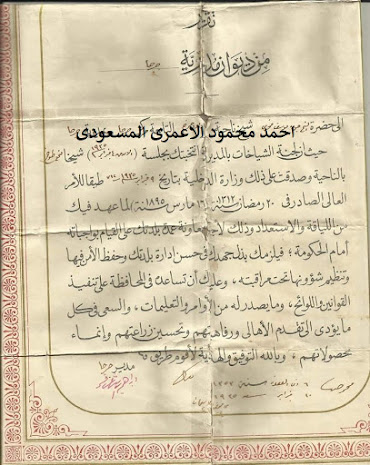 تقرير
من ديوان مديرية جرجا
الى حضرة
احمد محمود الاعمرى المسعودى
حيث ان لجنة الشياخات بالمديرية انتخبتك بجلسة شيخا
بالناحية وصدقت على ذلك وزارة الداخلية بتاريخ طبقا للأمر
العالى الصادر فى ٢٠ رمضان سنة ١٣١٢ (١٦ مارس سنة ١٨٩٥) لما عهد فيك
من اللياقة والاستعداد وذلك لأجل معاونة عمدة بلدتك على القيام بواجباته
أمام الحكومة، فيلزمك بذل جهدك فى حسن ادارة بلدتك وحفظ الأمر فيها
وتنظيم شؤونها تحت مراقبته، وعليك أن تساعده فى المحافظة على تنفيذ
القوانين واللوائح، وما يصدر له من الأوامر والتعليمات، والسعى فى كل
ما يؤدى الى تقدم الأهالى ورفاهتهم وتحسين زراعتهم وإنماء
محصولاتهم، وبالله التوفيق والهداية لأقوم طريق
مدير جرجا